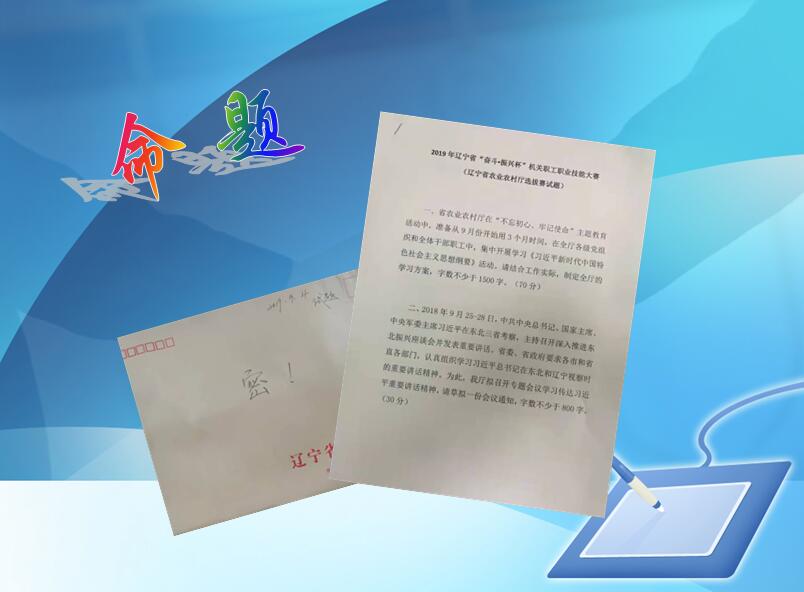 命题
2019年辽宁省“奋斗•振兴杯”机关职工职业技能大赛
（辽宁省农业农村厅选拔赛试题）
一、省农业农村厅在“不忘初心、牢记使命”主题教育
活动中，准备从9月份开始用3个月时间，在全厅各级党组
织和全体干部职工中，集中开展学习《习近平新时代中国特
色社会主义思想纲要》活动。请结合工作实际，制定全厅的
学习方案，字数不少于1500字。（70分）
二、2018年9月25-28日，中共中央总书记、国家主席、
中央军委主席习近平在东北三省考察，主持召开深入推进东
北振兴座谈会并发表重要讲话。省委、省政府要求各市和省
直各部门，认真组织学习习近平总书记在东北和辽宁视察时
的重要讲话精神。为此，我厅拟召开专题会议学习传达习近
平重要讲话精神，请草拟一份会议通知，字数不少于800字。
（30分）
2019.9.4
试题
密！
辽宁省